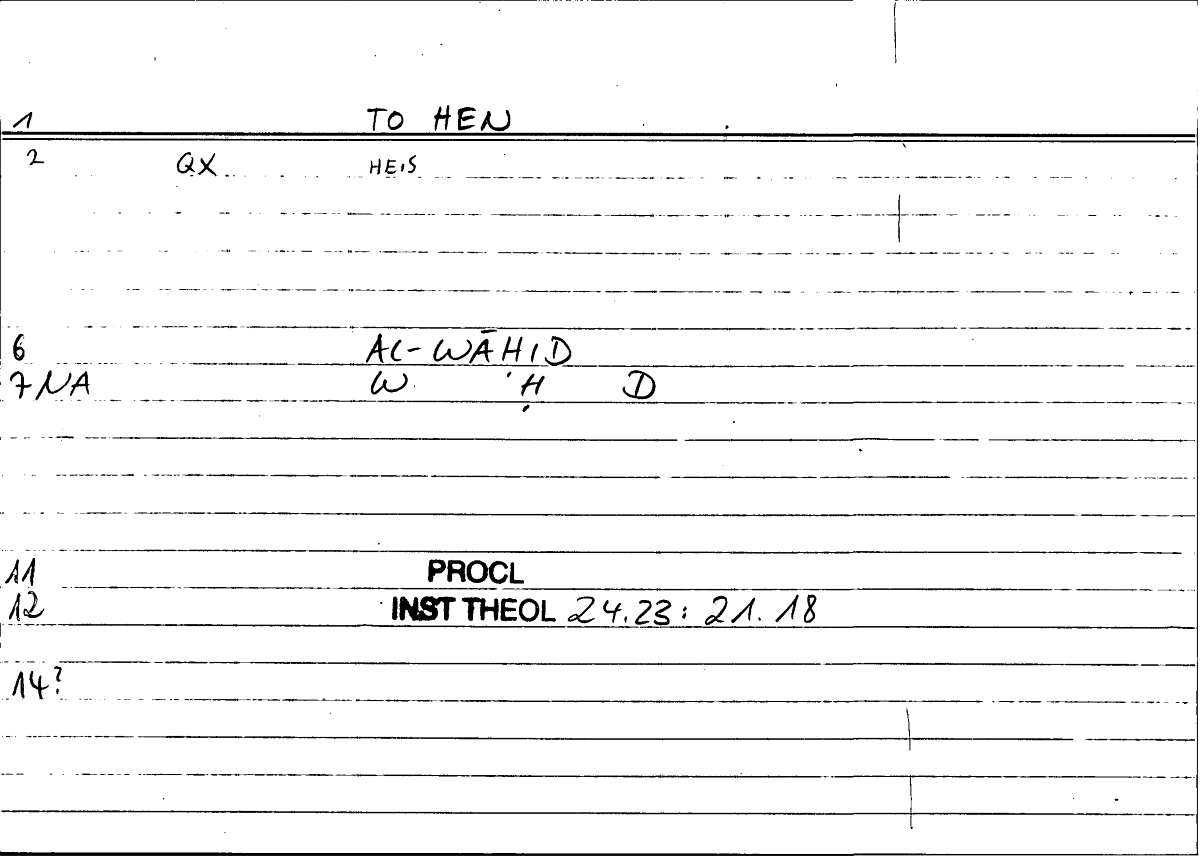 1 TO HEN
2 QX HEIS
6 AL-WĀHID
7 NA W Ḥ D
11 PROCL
12 INST THEOL 24.23: 21.18
14?